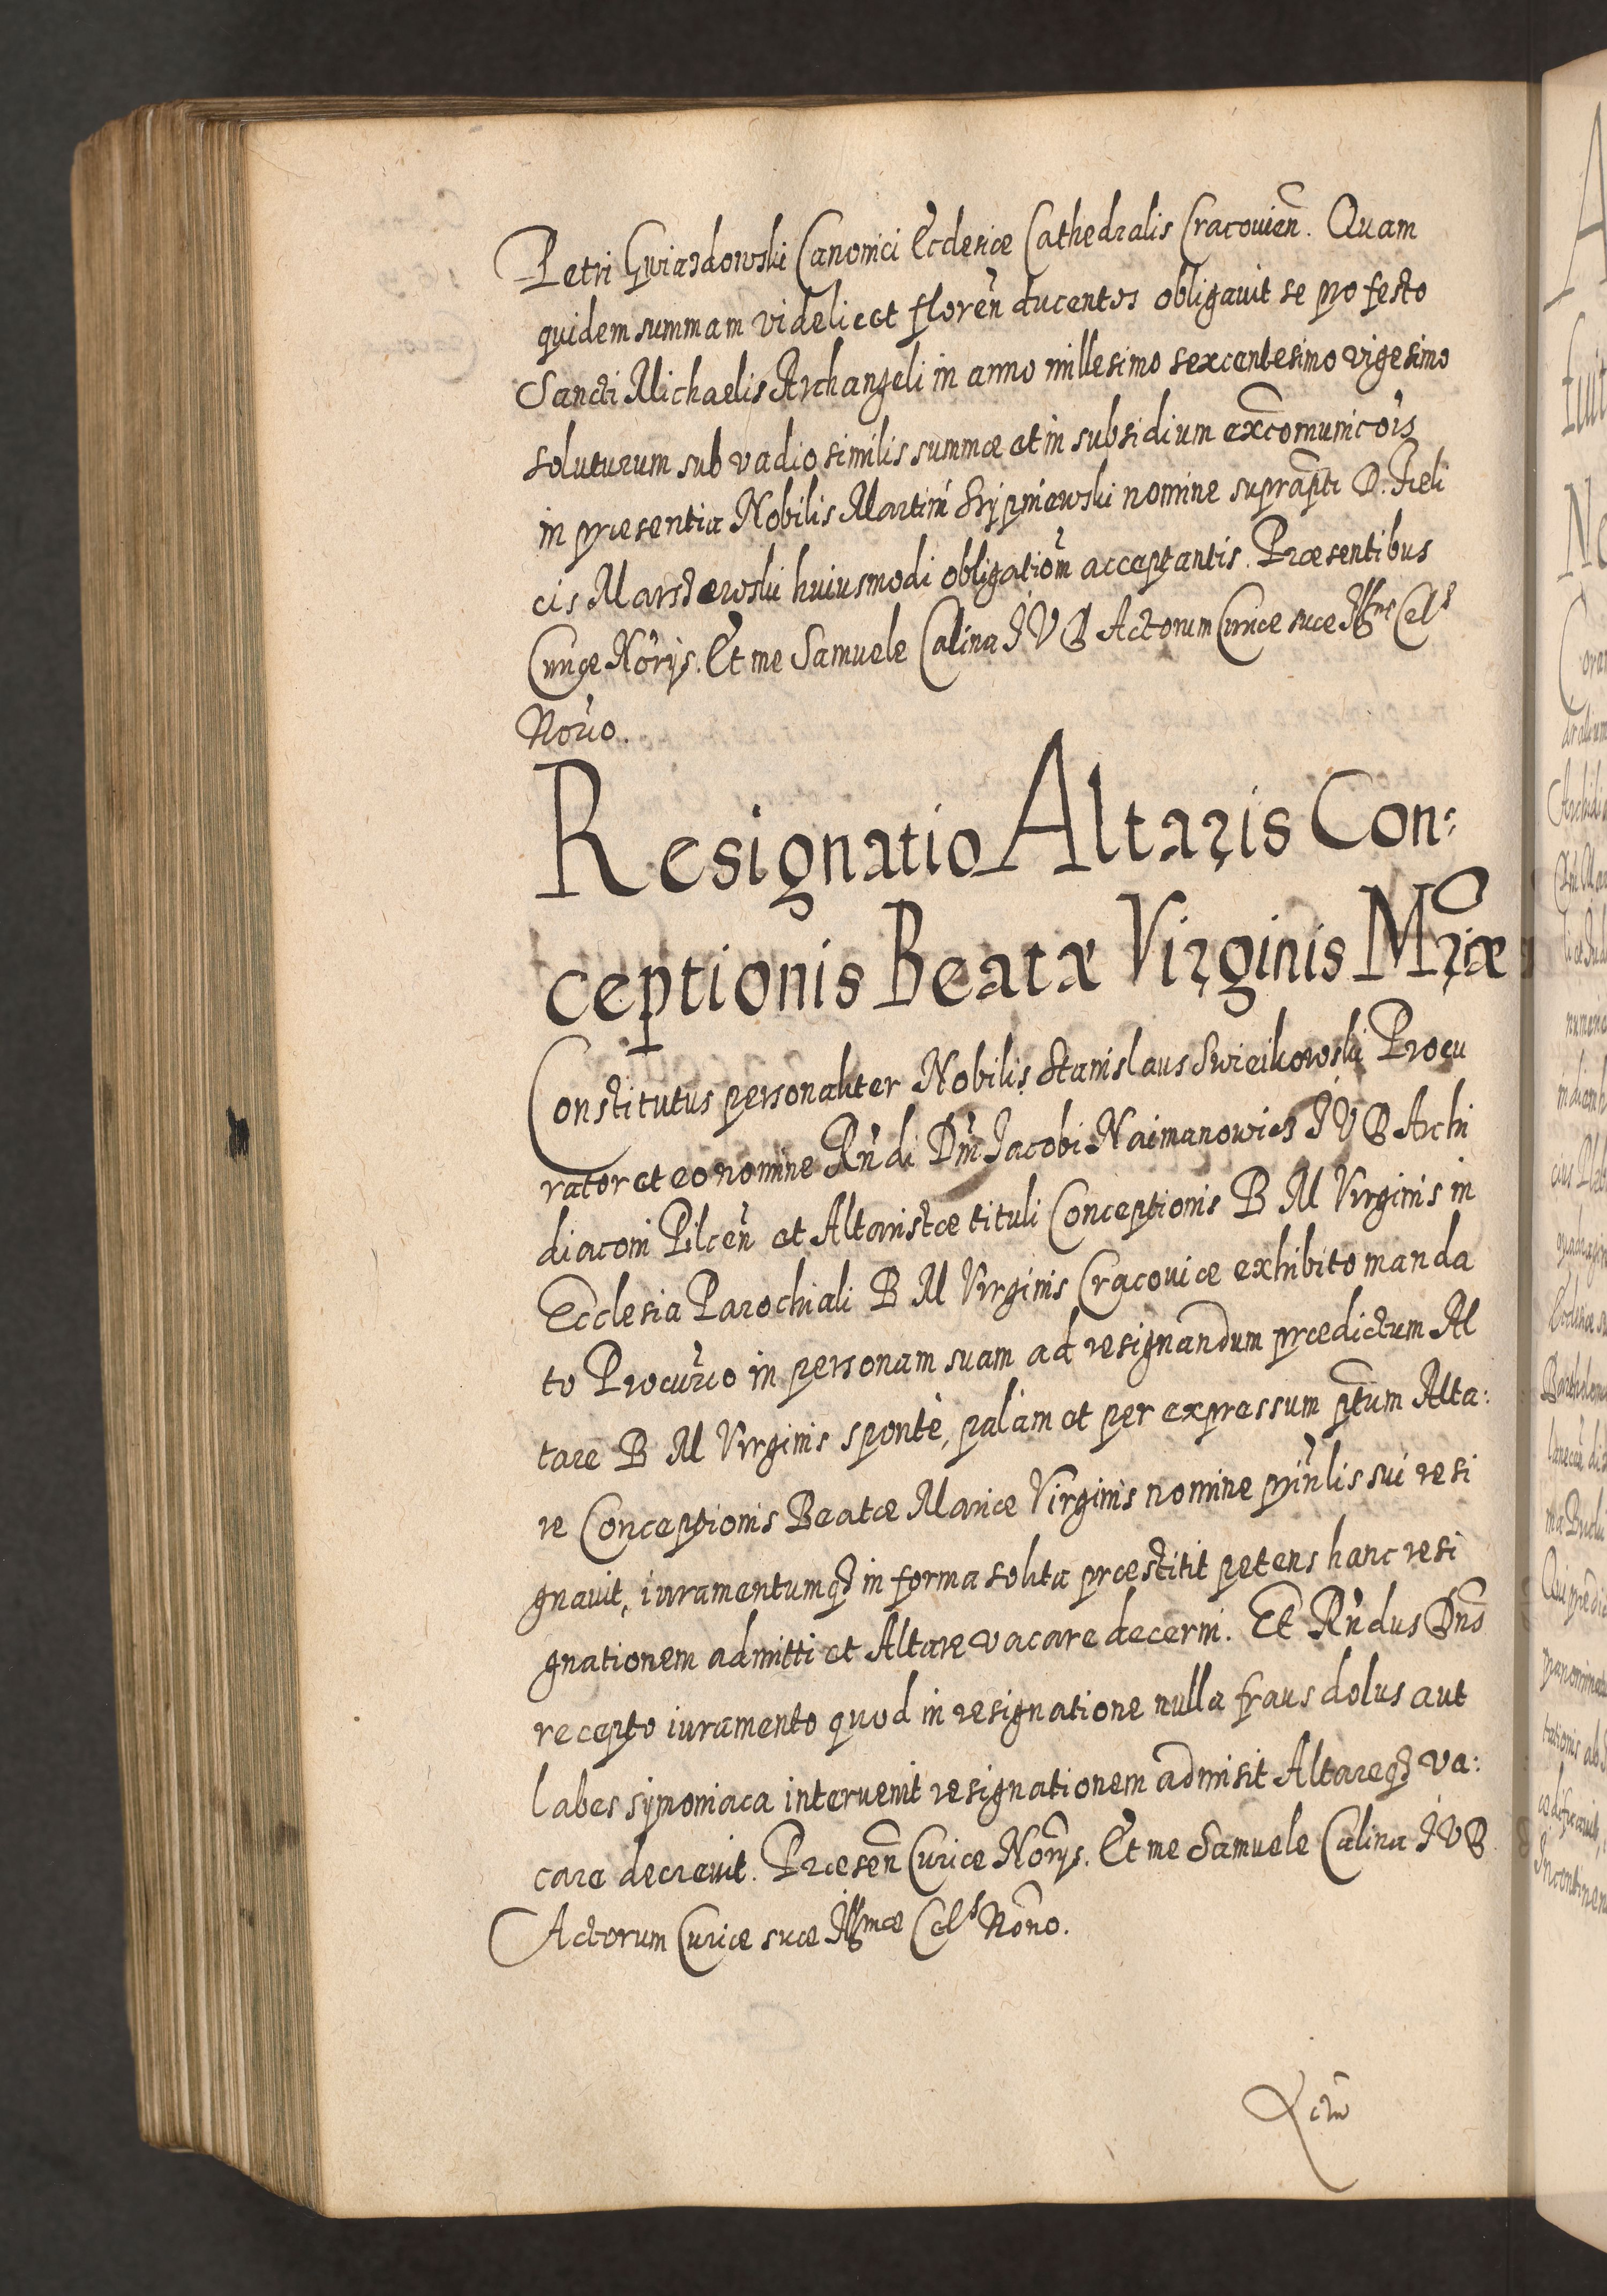 Petri Gwiazdowski Canonici Ecclesiæ Cathedralis Cracovień. Quam
quidem summam videlicet floreń ducentos obligavit se pro festo
Sancti Michaelis Archangeli in anno millesimo sexcentesimo vigesimo
soluturum sub vadio similis summæ et in subsidium excomunicõis
in præsentia Nobilis Martini Skrypniewski nomine suprapti D. Feli
cis Marszewski huiusmodi obligatiom acceptantis. Præsentibus
Curiæ Norijs. Et me Samuele Calina I V D Actorum Curiæ suæ Illmæ Cels
Norio.
Resignatio Altaris Con:
ceptionis Beatæ Virginis Mriæ
Constitutus personaliter Nobilis Stanislaus Swieikowski Procu
rator et eo nomine Rńdi Dńi Iacobi Naimanowicz I V D Archi
diaconi Pilceń et Altaristæ tituli Conceptionis B M Virginis in
Ecclesia Parochiali B M Virginis Cracoviæ exhibito manda
to Procurio in personam suam ad resignandum prædictum Al
tare B M Virginis sponte, palam et per expressum ptum Alta:
re Conceptionis Beatæ Mariæ Virginis nomine prinlis sui resi
gnavit, iuramentumqz in forma solita præstitit petens hanc resi
gnationem admitti et Altare vacare decerni. Et Rńdus Dns
recepto iuramento quod in resignatione nulla fraus dolus aut
labes symoniaca intervenit resignationem admisit Altareqz va:
care decrevit. Præseń Curiæ Norijs. Et me Samuele Calina I V D
Actorum Curiæ suæ Illmæ Cels Nório.